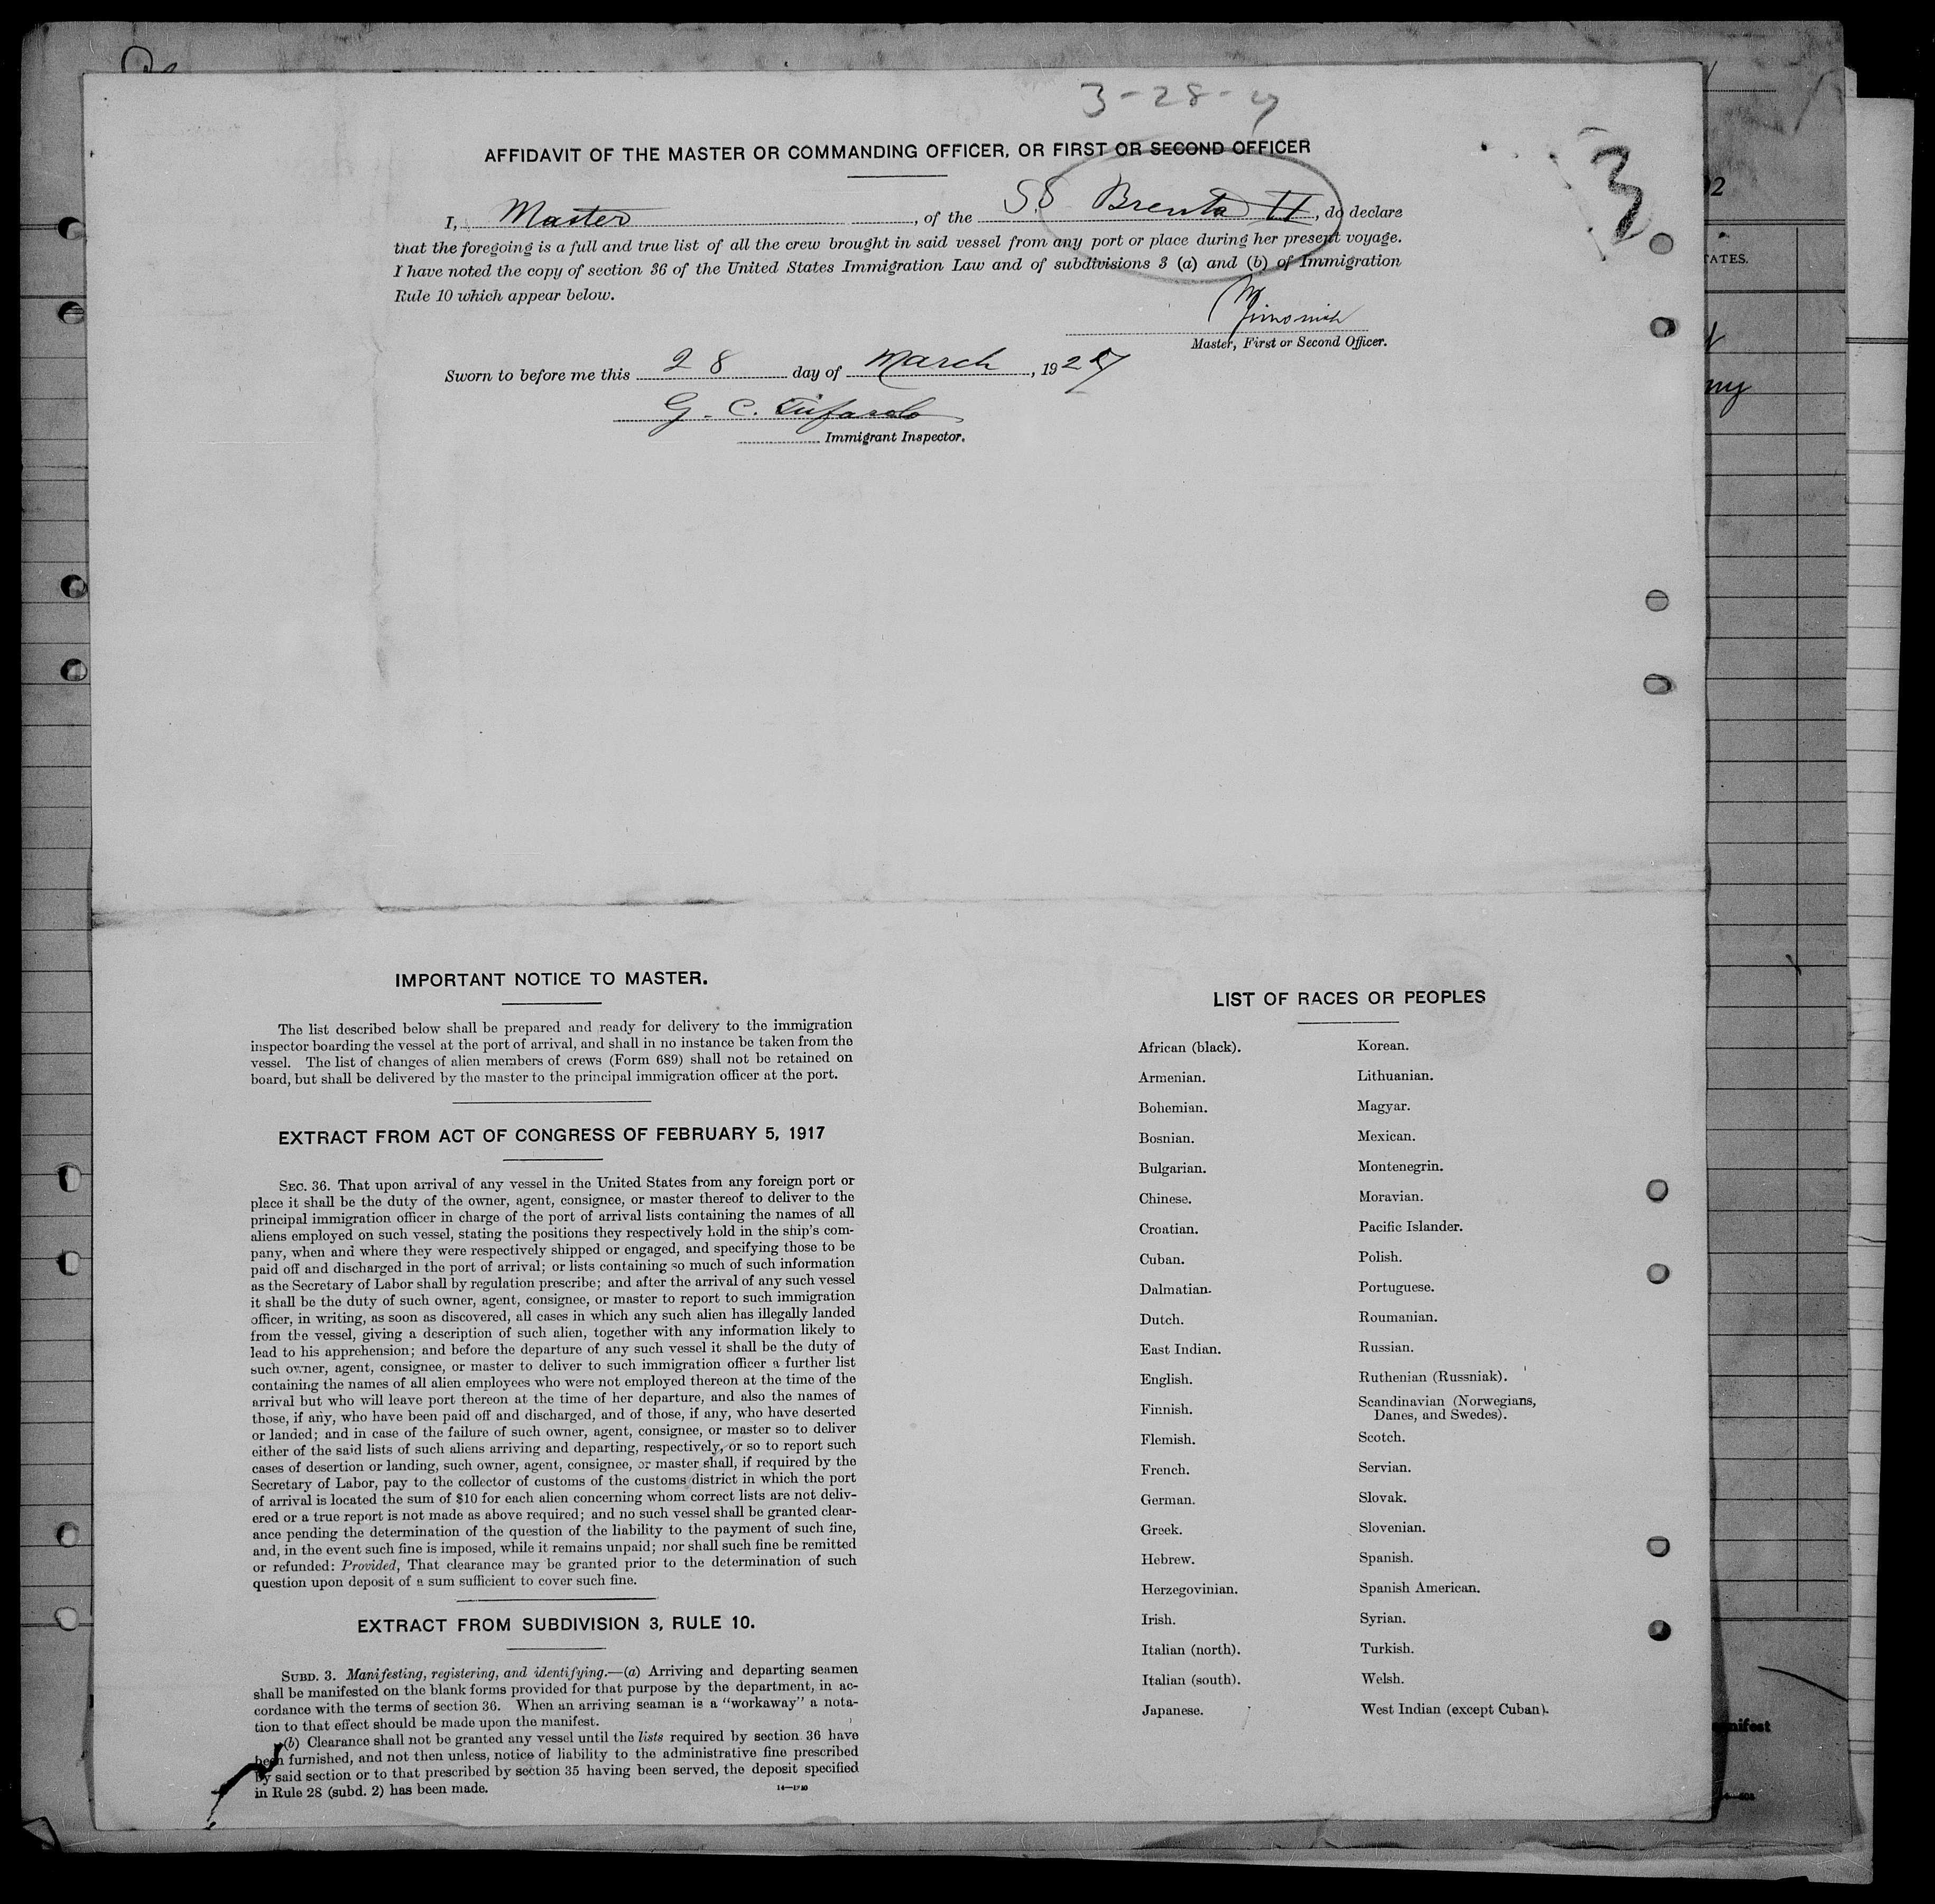 3-28-27
AFFIDAVIT OF THE MASTER OR COMMANDING OFFICER, OR FIRST OR SECOND OFFICER
3
I, Master, of the S.S Brenta II, do declare
that the foregoing is a full and true list of all the crew brought in said vessel from any port or place during her present voyage.
I have noted the copy of section 36 of the United States Immigration Law and of subdivisions 3 (a) and (b) of Immigration
Rule 10 which appear below.
Master, First or Second Officer.
Sworn to before me this 28 day of March, 1927
G. C.
Immigrant Inspector.
IMPORTANT NOTICE TO MASTER.
The list described below shall be prepared and ready for delivery to the immigration
inspector boarding the vessel at the port of arrival, and shall in no instance be taken from the
vessel. The list of changes of alien members of crews (Form 689) shall not be retained on
board, but shall be delivered by the master to the principal immigration officer at the port.
EXTRACT FROM ACT OF CONGRESS OF FEBRUARY 5, 1917
SEC. 36. That upon arrival of any vessel in the United States from any foreign port or
place it shall be the duty of the owner, agent, consignee, or master thereof to deliver to the
principal immigration officer in charge of the port of arrival lists containing the names of all
aliens employed on such vessel, stating the positions they respectively hold in the ship's com-
pany, when and where they were respectively shipped or engaged, and specifying those to be
paid off and discharged in the port of arrival; or lists containing so much of such information
as the Secretary of Labor shall by regulation prescribe; and after the arrival of any such vessel
it shall be the duty of such owner, agent, consignee, or master to report to such immigration
officer, in writing, as soon as discovered, all cases in which any such alien has illegally landed
from the vessel, giving a description of such alien, together with any information likely to
lead to his apprehension; and before the departure of any such vessel it shall be the duty of
such owner, agent, consignee, or master to deliver to such immigration officer a further list
containing the names of all alien employees who were not employed thereon at the time of the
arrival but who will leave port thereon at the time of her departure, and also the names of
those, if any, who have been paid off and discharged, and of those, if any, who have deserted
or landed; and in case of the failure of such owner, agent, consignee, or master so to deliver
either of the said lists of such aliens arriving and departing, respectively, or so to report such
cases of desertion or landing, such owner, agent, consignee, or master shall, if required by the
Secretary of Labor, pay to the collector of customs of the customs district in which the port
of arrival is located the sum of $10 for each alien concerning whom correct lists are not deliv-
ered or a true report is not made as above required; and no such vessel shall be granted clear-
ance pending the determination of the question of the liability to the payment of such fine,
and, in the event such fine is imposed, while it remains unpaid; nor shall such fine be remitted
or refunded: Provided, That clearance may be granted prior to the determination of such
question upon deposit of a sum sufficient to cover such fine.
EXTRACT FROM SUBDIVISION 3, RULE 10.
SUBD. 3. Manifesting, registering, and identifying.—(a) Arriving and departing seamen
shall be manifested on the blank forms provided for that purpose by the department, in ac-
cordance with the terms of section 36. When an arriving seaman is a "workaway" a nota-
tion to that effect should be made upon the manifest.
(b) Clearance shall not be granted any vessel until the lists required by section 36 have
been furnished, and not then unless, notice of liability to the administrative fine prescribed
by said section or to that prescribed by section 35 having been served, the deposit specified
in Rule 28 (subd. 2) has been made.
LIST OF RACES OR PEOPLES
African (black). Korean.
Armenian. Lithuanian.
Bohemian. Magyar.
Bosnian. Mexican.
Bulgarian. Montenegrin.
Chinese. Moravian.
Croatian. Pacific Islander.
Cuban. Polish.
Dalmatian. Portuguese.
Dutch. Roumanian.
East Indian. Russian.
English. Ruthenian (Russniak).
Finnish. Scandinavian (Norwegians,
Danes, and Swedes).
Flemish. Scotch.
French. Servian.
German. Slovak.
Greek. Slovenian.
Hebrew. Spanish.
Herzegovinian. Spanish American.
Irish. Syrian.
Italian (north). Turkish.
Italian (south). Welsh.
Japanese. West Indian (except Cuban).